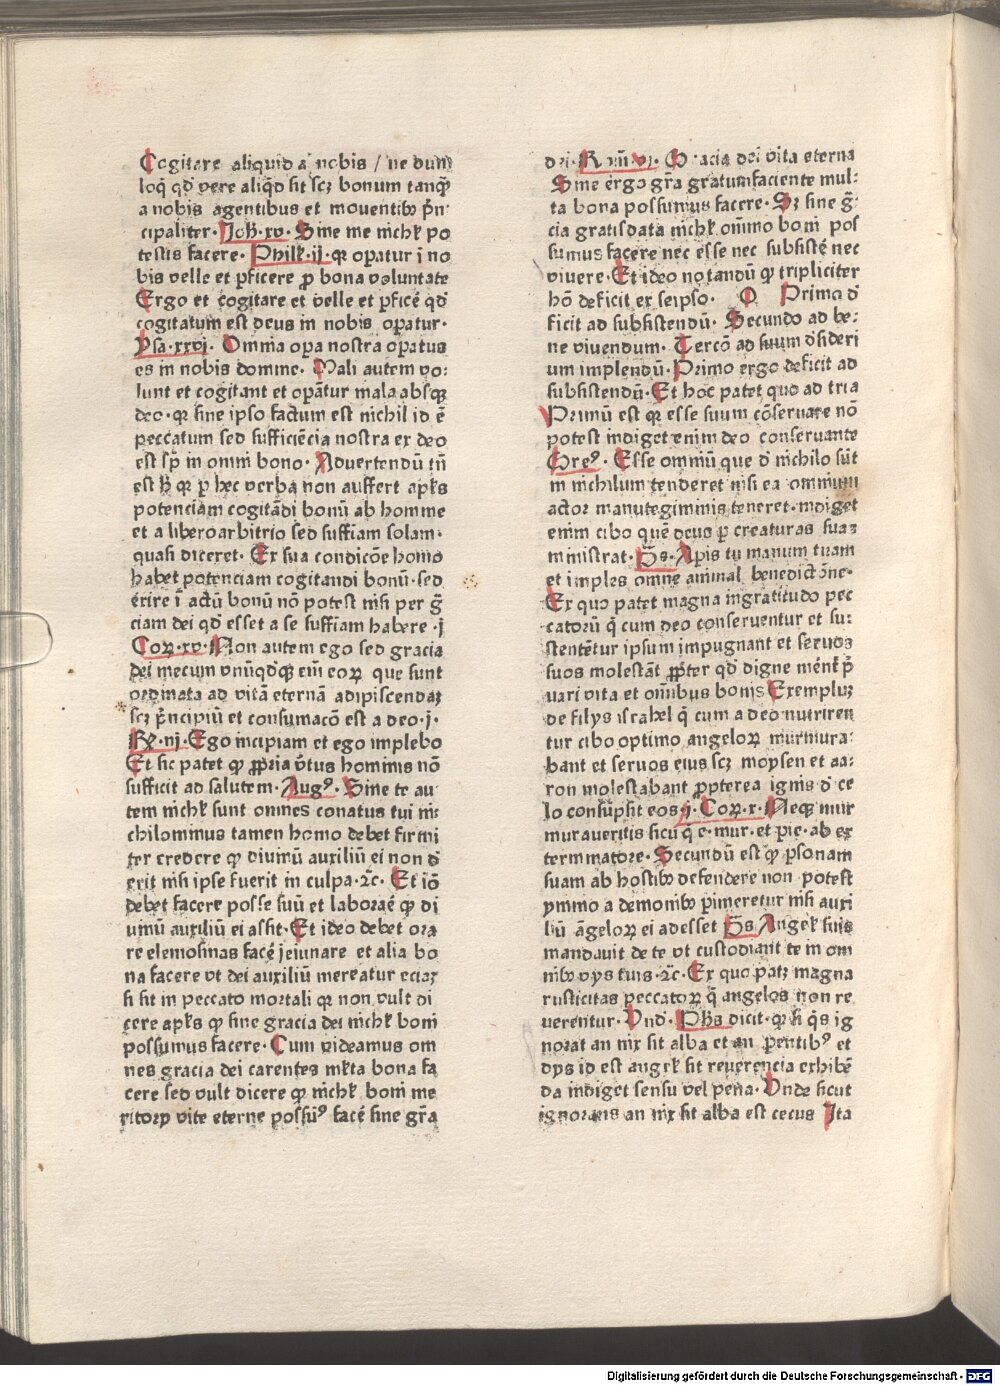 Cogitare aliquid a nobis / ne dum
loq̄ qd̄ vere aliq̄d sit scꝫ bonum tanq̄
a nobis agentibus et mouentibꝰ p̄n
cipaliter· Joh̄·xv· Sine me nichꝉ po
testis facere· Philꝉ·ij· qꝛ opatur ī no
bis velle et ꝑficere ꝓ bona voluntate
Ergo et cogitare et velle et ꝑficē qd̄
cogitatum est deus in nobis oꝑatur·
Ysa·xxvj· Omnia oꝑa nostra oꝑatus
es in nobis domine· Mali autem vo⸗
lunt et cogitant et oꝑātur mala absqꝫ
deo· qꝛ sine ipso factum est nichil id ē
peccatum sed sufficiēcia nostra ex deo
est sꝑ in omni bono· Aduertendū tn̄
est ꝙ qꝛ ꝑ hec verba non auffert apꝉs
potenciam cogitādi bonū ab homine
et a libero arbitrio sed suffīam solam·
quasi diceret· Ex sua condicōe homo
habet potenciam cogitandi bonū· sed
exire ī actū bonū nō potest nisi per ḡ
ciam dei qd̄ esset a se suffīam habere·j
Coꝝ·xv· Non autem ego sed gracia
dei mecum vnūqd̄qꝫ em̄ eoꝝ que sunt
ordinata ad vitā eternā adipiscendaꝫ
scꝫ p̄ncipiū et consumacō est a deo·j·
Rꝫ·nj· Ego incipiam et ego implebo
Et sic patet ꝙ ꝓpria v̄tus hominis nō
sufficit ad salutem· Augꝰ· Sine te au
tem nichꝉ sunt omnes conatus tui ni⸗
chilominus tamen homo debet firmi
ter credere ꝙ diuinū auxiliū ei non d̄
erit nisi ipse fuerit in culpa·⁊c· Et iō
debet facere posse suū et laboraē ꝙ di
uinū auxiliū ei assit· Et ideo debet ora
re elemosinas facē jeiunare et alia bo
na facere vt dei auxiliū mereatur eciaꝫ
si sit in peccato mortali qꝛ non vult di
cere apꝉs ꝙ sine gracia dei nichꝉ boni
possumus facere· Cum videamus om
nes gracia dei carentes mꝉta bona fa
cere sed vult dicere ꝙ nichꝉ boni me
ritoꝝ vite eterne possūꝰ facē sine gr̄a
dei· Rom̄·vj· Gracia dei vita eterna
Sine ergo gr̄a gratumfaciente mul⸗
ta bona possumus facere· Sꝫ sine ḡ⸗
cia gratisdata nichꝉ om̄ino boni pos
sumus facere nec esse nec subsistē nec
viuere· Et ideo notandū ꝙ tripliciter
hō deficit ex seipso· Primo d̄
ficit ad subsistendū· Secundo ad be⸗
ne viuendum· Tercō ad suum d̄sideri
um implendū· Primo ergo deficit ad
subsistendū· Et hoc patet quo ad tria
Primū est qꝛ esse suum cōseruare nō
potest indiget enim deo conseruante
Greꝰ· Esse omniū que d̄ nichilo sūt
in nichilum tenderet nisi ea omnium
actor manu regiminis teneret· indiget
enim cibo quē deus ꝑ creaturas suas
ministrat· Ps· Aꝑis tu manum tuam
et imples omne animal benedictōne·
Ex quo patet magna ingratitudo pec
catorū q̄ cum deo conseruentur et su⸗
stentētur ipsum impugnant et seruos
suos molestāt ꝓpter qd̄ digne mēnt̄ p̄
uari vita et om̄ibus bonis Exempluꝫ
de filijs israhel q̄ cum a deo nutriren
tur cibo optimo angeloꝝ murmura⸗
bant et seruos eius scꝫ moysen et aa⸗
ron molestabant ꝓpterea ignis d̄ ce
lo consūpsit eos j· Coꝝ·x· Neqꝫ mur
muraueritis sicut q̄ e·mur·et pie·ab ex
terminatore· Secundū est ꝙ ꝑsonam
suam ab hostibꝰ defendere non potest
ymmo a demonibꝰ ꝑimeretur nisi auxi
liū āgeloꝝ ei adesset Ps Angelꝉ suis
mandauit de te vt custodiant te in om
nibꝰ vijs tuis·⁊c· Ex quo patꝫ magna
rusticitas peccatoꝝ q̄ angelos non re
uerentur· Vnd̄· Ph̄s dicit· ꝙ si q̄s ig
norat an nix sit alba et an ꝑentibꝰ et
dijs id est angelꝉ sit reuerencia exhibē
da indiget sensu vel pena· Vnde sicut
ignorans an nix sit alba est cecus Ita
Digitalisierung gefördert durch die Deutsche Forschungsgemeinschaft - DFG